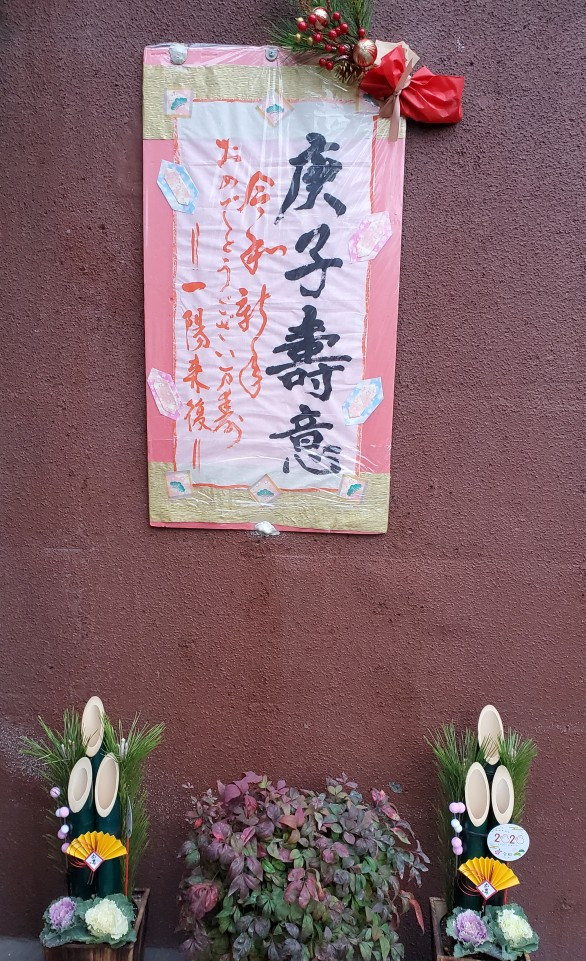 庚子壽意
令和新年
おめでとうござい万寿
＝一陽来復＝
2020